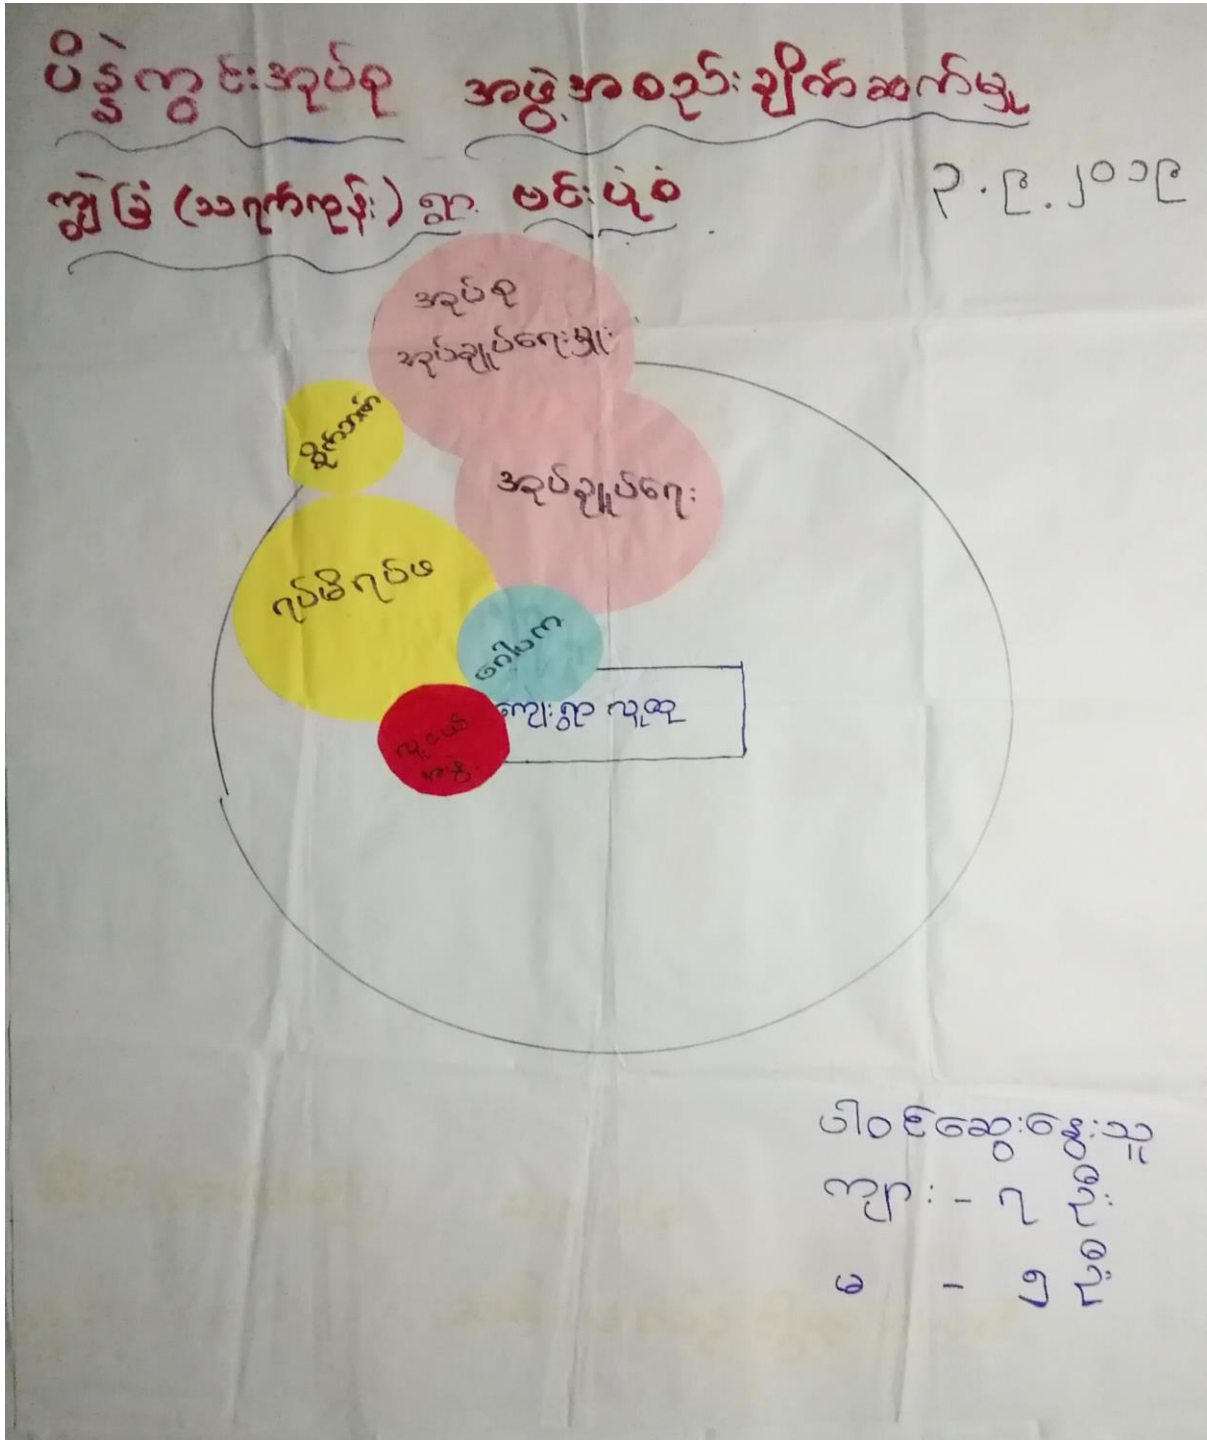 ပိန္နဲကွင်းအုပ်စု အဖွဲ့အစည်းချိတ်ဆက်မှု
ကျွဲခြံ (သရက်ကုန်း) ရွာ ဗင်းပုံစံ
၃.၉.၂၀၁၉
အုပ်စု
အုပ်ချုပ်ရေးမှူး
အုပ်ချုပ်ရေး
ရပ်မိရပ်ဖ
ဂေါပက
ကျေးရွာ လူထု
လူငယ်
အဖွဲ့
ပါဝင်ဆွေးနွေးသူ
ကျား - ၇ ဦး
မ - ၅ ဦး